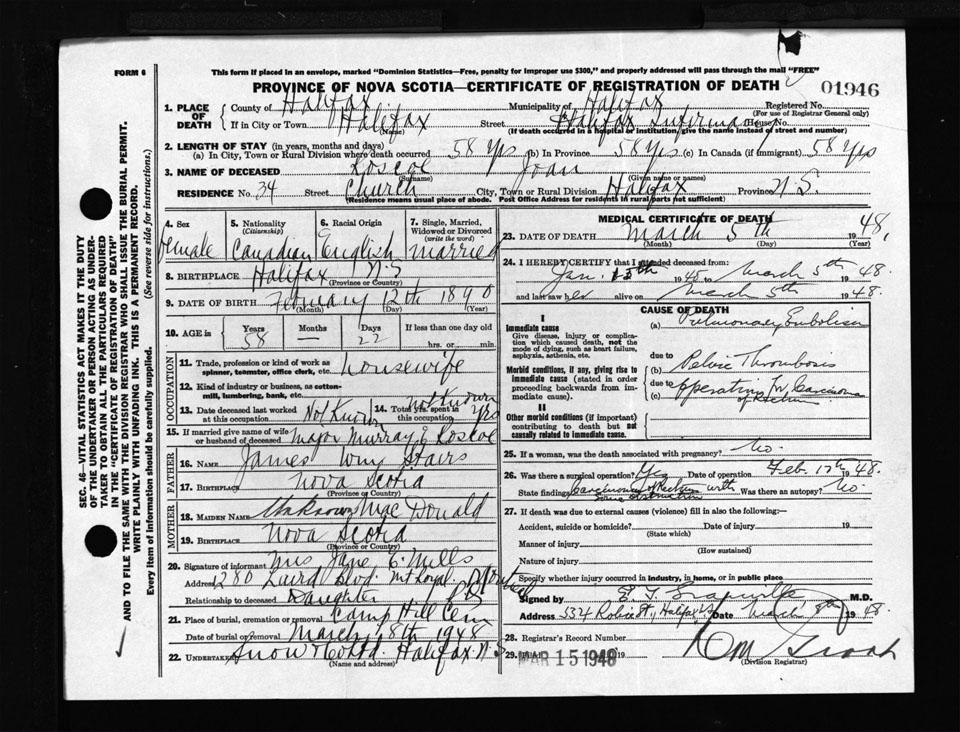 FORM 6
This form if placed in an envelope, marked "Dominion Statistics—Free, penalty for improper use $300," and properly addressed will pass through the mail "FREE"
PROVINCE OF NOVA SCOTIA—CERTIFICATE OF REGISTRATION OF DEATH
01946
1. PLACE OF DEATH
County of Halifax Municipality of Halifax Registered No.
(For use of Registrar General only)
If in City or Town Halifax Street Halifax Infirmary House No.
(Name) (If death occurred in a hospital or institution, give the name instead of street and number)
2. LENGTH OF STAY (in years, months and days)
(a) In City, Town or Rural Division where death occurred 58 Yrs (b) In Province 58 Yrs (c) In Canada (if immigrant) 58 Yrs
3. NAME OF DECEASED Roscoe Joan
(Surname) (Given name or names)
RESIDENCE No. 34 Street Church City, Town or Rural Division Halifax Province N.S.
(Residence means usual place of abode. Post Office Address for residents in rural parts not sufficient)
4. Sex Female
5. Nationality (Citizenship) Canadian
6. Racial Origin English
7. Single, Married, Widowed or Divorced (write the word) Married
8. BIRTHPLACE Halifax N.S
(Province or Country)
9. DATE OF BIRTH February 12th 1890
(Month) (Day) (Year)
10. AGE in Years 58 Months — Days 22 If less than one day old
hrs. or min.
OCCUPATION
11. Trade, profession or kind of work as spinner, teamster, office clerk, etc. housewife
12. Kind of industry or business, as cotton-mill, lumbering, bank, etc.
13. Date deceased last worked at this occupation Not Known
14. Total yrs. spent in this occupation Not Known Yrs
15. If married give name of wife or husband of deceased Major Murray E Roscoe
FATHER
16. NAME James Wm Stairs
17. BIRTHPLACE Nova Scotia
(Province or Country)
MOTHER
18. MAIDEN NAME Unknown MacDonald
19. BIRTHPLACE Nova Scotia
(Province or Country)
20. Signature of informant Mrs Jane E. Mills
Address 280 Laird Blvd. Mt Royal. Montreal
Relationship to deceased Daughter P.Q
21. Place of burial, cremation or removal Camp Hill Cem
Date of burial or removal March 8th 1948
22. Undertaker Snow & Co Ltd. Halifax N.S
(Name and address)
MEDICAL CERTIFICATE OF DEATH
23. DATE OF DEATH March 5th 1948,
(Month) (Day) (Year)
24. I HEREBY CERTIFY that I attended deceased from:
Jan. 15th 1945 to March 5th 1948.
and last saw her alive on March 5th 1948.
CAUSE OF DEATH
I
Immediate cause
Give disease, injury or complication which caused death, not the mode of dying, such as heart failure, asphyxia, asthenia, etc.
(a) Pulmonary Embolism
due to
Morbid conditions, if any, giving rise to immediate cause (stated in order proceeding backwards from immediate cause).
(b) Pelvic Thrombosis
due to
(c) operation for Carcinoma of Rectum
II
Other morbid conditions (if important) contributing to death but not causally related to immediate cause.
25. If a woman, was the death associated with pregnancy? No.
26. Was there a surgical operation? Yes Date of operation Feb. 17th 1948.
State findings Carcinoma of Rectum with some obstruction Was there an autopsy? No.
27. If death was due to external causes (violence) fill in also the following:—
Accident, suicide or homicide? Date of injury 19
(State which)
Manner of injury
(How sustained)
Nature of injury
Specify whether injury occurred in industry, in home, or in public place
Signed by E. F. M.D.
Address Robie St., Halifax Date March 8th 1948.
28. Registrar's Record Number
29. MAR 15 1948 19
(Division Registrar)
SEC. 46—VITAL STATISTICS ACT MAKES IT THE DUTY OF THE UNDERTAKER OR PERSON ACTING AS UNDERTAKER TO OBTAIN ALL THE PARTICULARS REQUIRED IN THE "CERTIFICATE OF REGISTRATION OF DEATH" AND TO FILE THE SAME WITH THE DIVISION REGISTRAR WHO SHALL ISSUE THE BURIAL PERMIT.
WRITE PLAINLY WITH UNFADING INK. THIS IS A PERMANENT RECORD.
Every item of information should be carefully supplied. (See reverse side for instructions.)